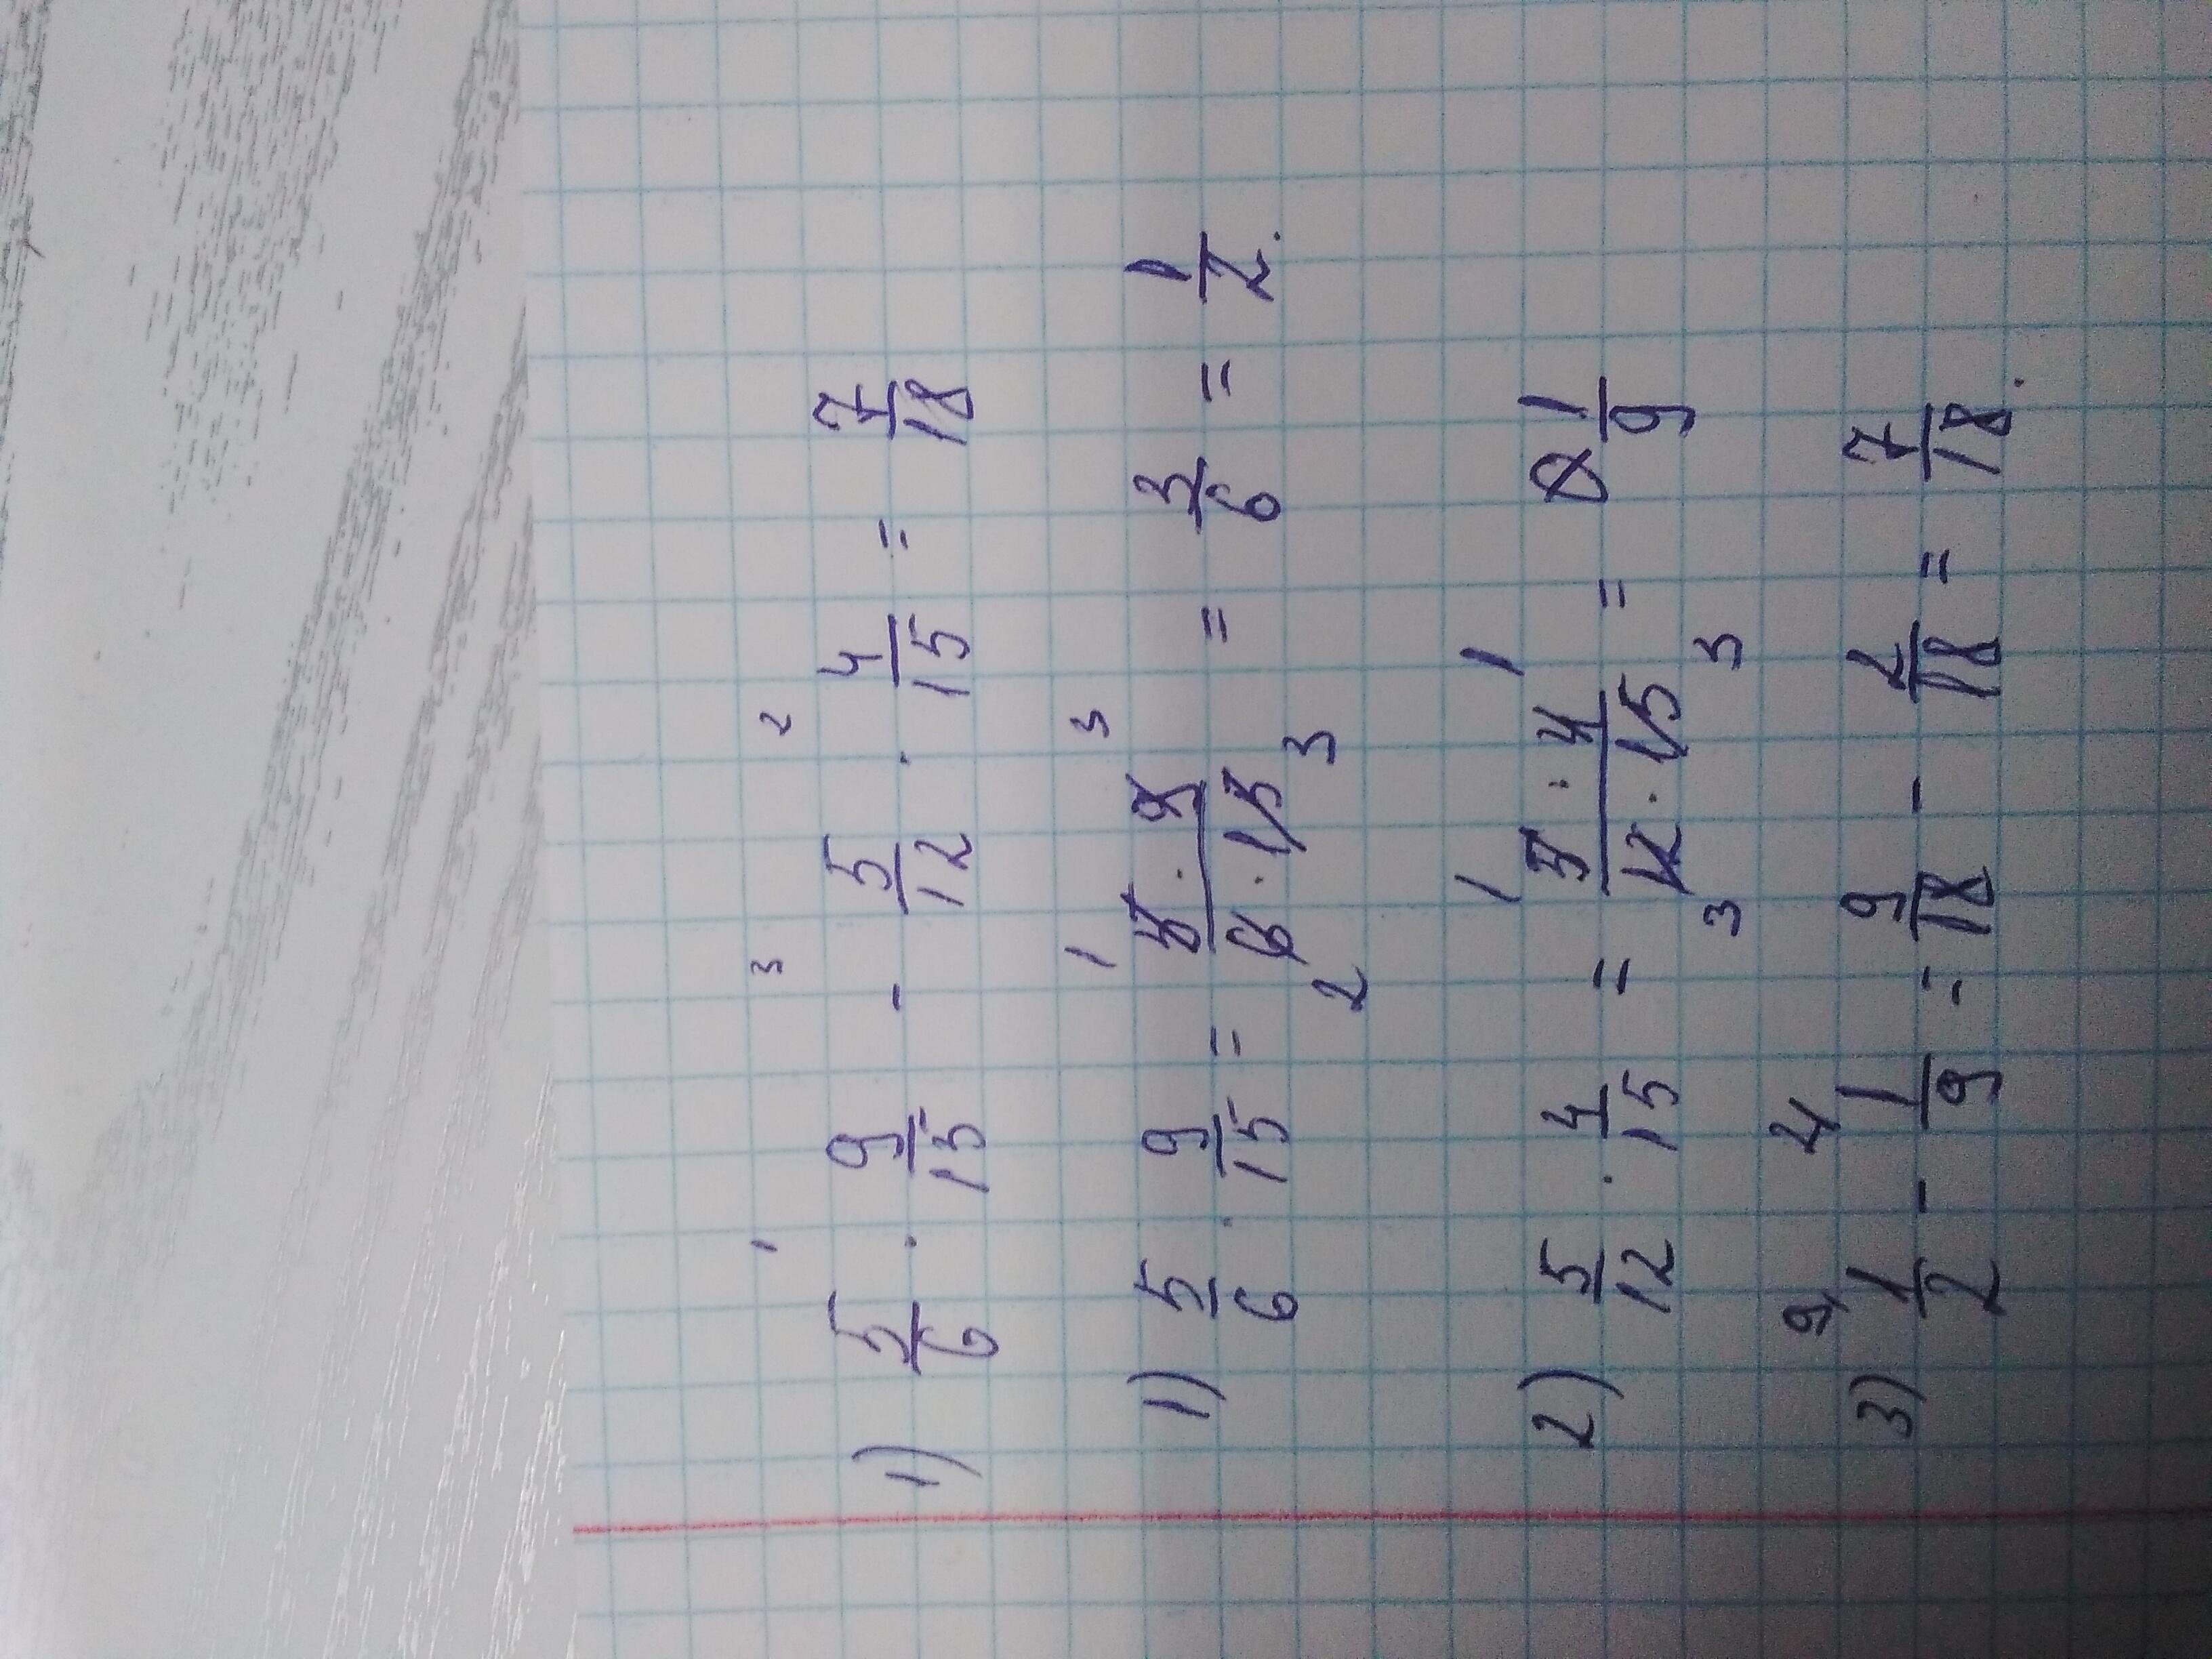 1 3 2
1) 5/6 · 9/15 - 5/12 · 4/15 = 7/18
1 3
1) 5/6 · 9/15 = 5 · 9/6 · 15 = 3/6 = 1/2.
2 3
1 1
2) 5/12 · 4/15 = 5 · 4/12 · 15 = 1/9
3 3
3) 1/2 - 1/9 = 9/18 - 2/18 = 7/18.